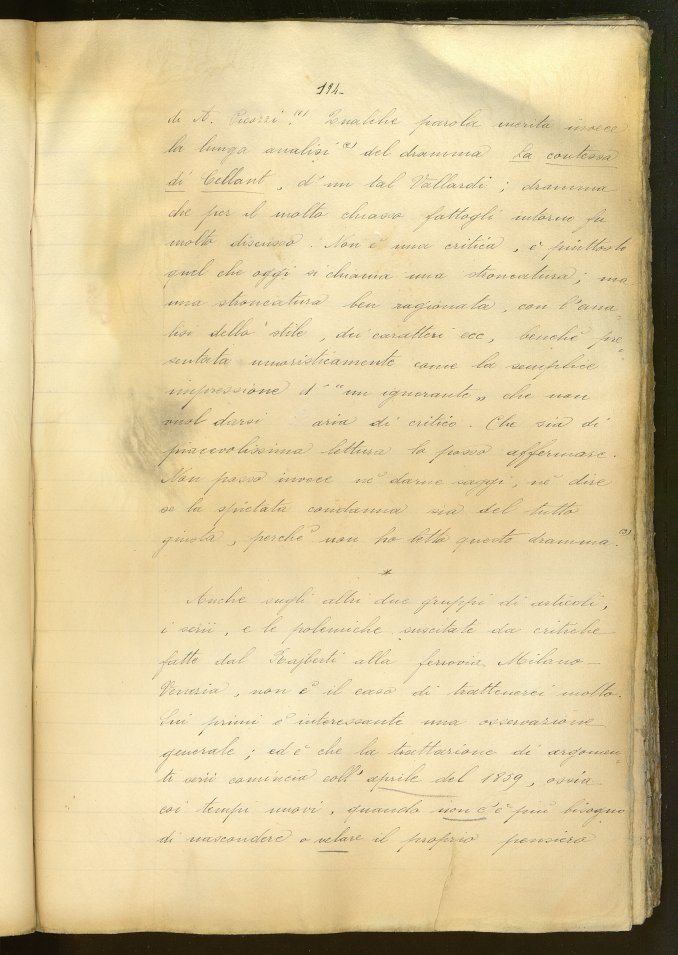 194.
di A. Picozzi. (1) Qualche parola merita invece
la lunga analisi (2) del dramma La contessa
di Cellant, d'un tal Vallardi; dramma
che per il molto chiasso fattogli intorno fu
molto discusso. Non è una critica, è piuttosto
quel che oggi si chiama una stroncatura; ma
una stroncatura ben ragionata, con l'ana-
lisi dello stile, dei caratteri ecc, benchè pre-
sentata umoristicamente come la semplice
impressione d' "un ignorante" che non
vuol darsi aria di critico. Che sia di
piacevolissima lettura lo posso affermare.
Non posso invece nè darne saggi, nè dire
se la spietata condanna sia del tutto
giusta, perchè non ho letto questo dramma. (3)
*
Anche sugli altri due gruppi di articoli,
i serii, e le polemiche suscitate da critiche
fatte dal Rajberti alla ferrovia Milano-
Venezia, non è il caso di trattenerci molto.
Sui primi è interessante una osservazione
generale; ed è che la trattazione di argomen-
ti serii comincia coll'aprile del 1859, ossia
coi tempi nuovi, quando non c'è più bisogno
di nascondere o velare il proprio pensiero